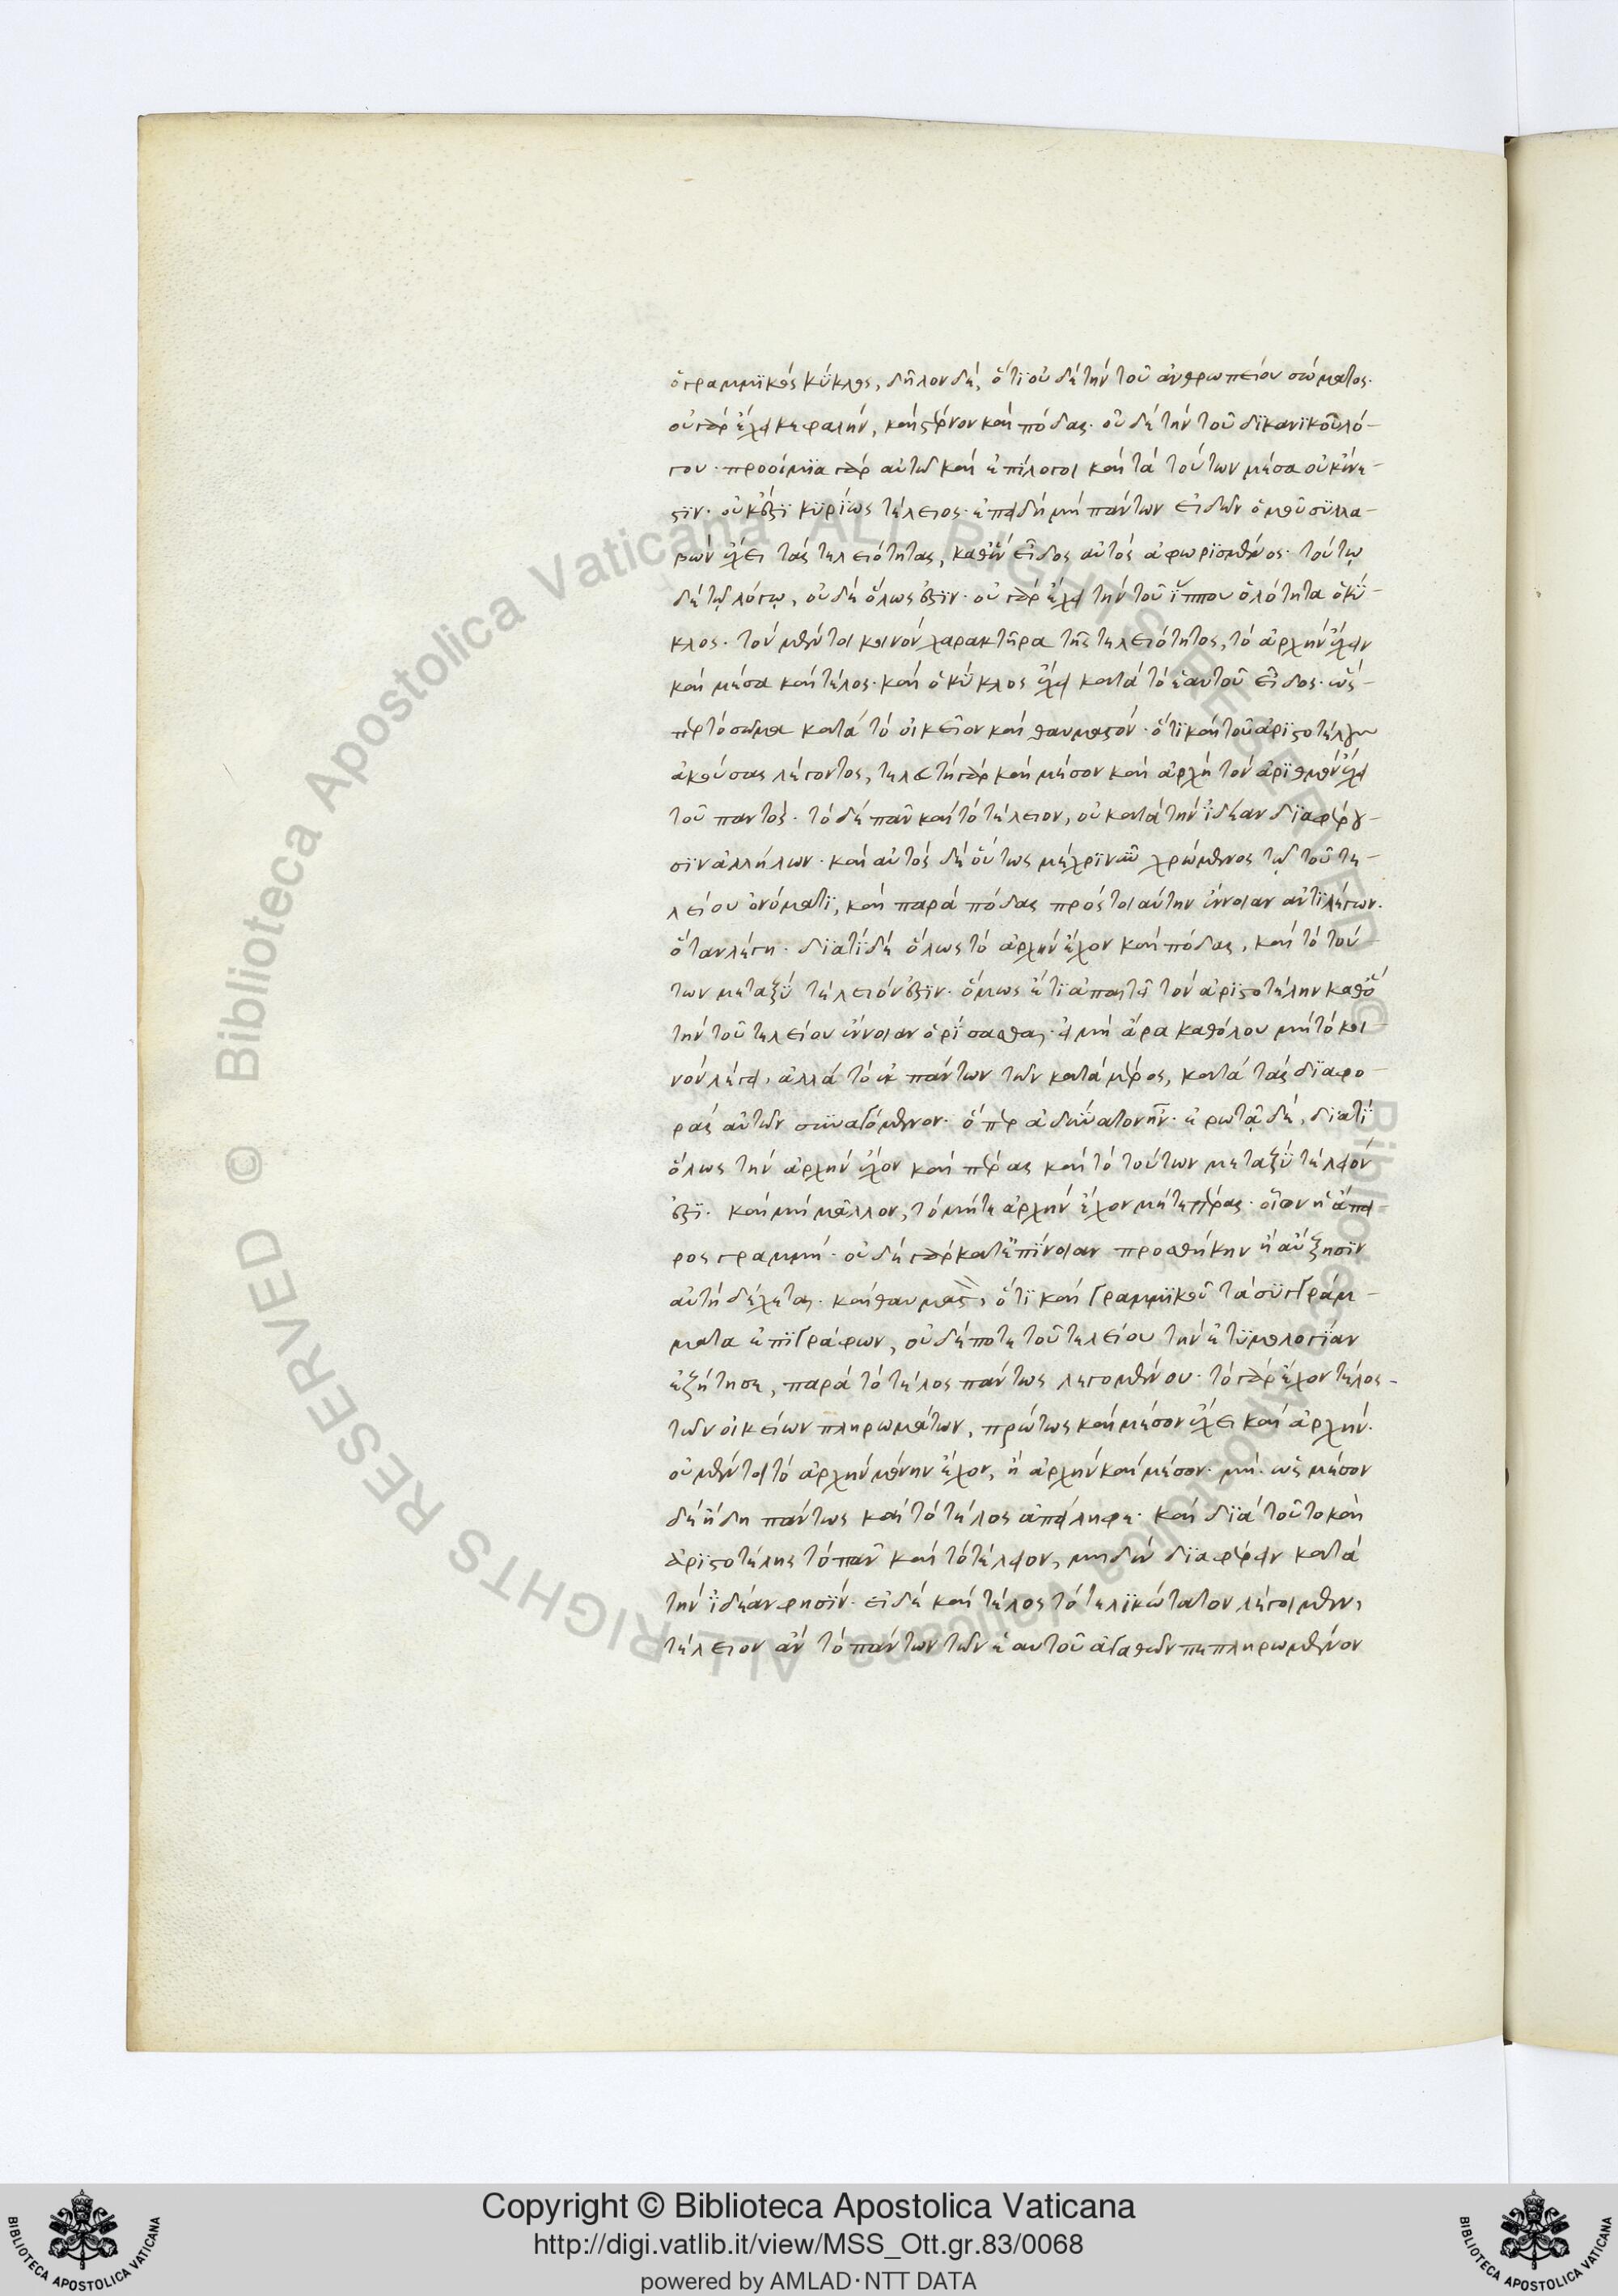 ὁ γραμμϊκὸς κύκλος, δῆλον δὲ, ὅτϊ οὐδὲ τὴν τοῦ ἀνθρωπείου σώματος·
οὐ γὰρ ἔχει κεφαλὴν, καὶ στέρνον καὶ πόδας· οὐδὲ τὴν τοῦ δϊκανϊκοῦ λό-
γου· προοίμϊα γὰρ αὐτῶ καὶ ἐπίλογοι καὶ τὰ τούτων μέσα οὐκ ἔνε-
στϊν· οὐκ ἔστϊ κϋρίως τέλειος· ἐπειδὴ μὴ πάντων εἰδῶν ὁμοῦ σϋλλα-
βὼν ἔχει τὰς τελειότητας, καθ' ἣν εἶδος αὐτὸς ἀφωρϊσμένος· τούτῳ
δὲ τῷ λόγῳ, οὐδὲ ὅλως ἔστϊν· οὐ γὰρ ἔχει τὴν τοῦ ἵππου ὁλότητα ὁ κύ-
κλος· τὸν μέντοι κοινὸν χαρακτῆρα τῆς τελειότητος, τὸ ἀρχὴν ἔχειν
καὶ μέσα καὶ τέλος· καὶ ὁ κύκλος ἔχει κατὰ τὸ ἑαυτοῦ εἶδος· ὥσ-
περ τὸ σῶμα κατὰ τὸ οἰκεῖον καὶ θαυμαστὸν· ὅτϊ καὶ τοῦ ἀρϊστοτέλους
ἀκούσας λέγοντος, τελετὴ γὰρ καὶ μέσον καὶ ἀρχὴ τὸν ἀρϊθμὸν ἔχει
τοῦ παντός· τὸ δὲ πᾶν καὶ τὸ τέλειον, οὐ κατὰ τὴν ἰδέαν δϊαφέρου-
σϊν ἀλλήλων· καὶ αὐτὸς δὲ οὕτως μέχρϊ νῦν χρώμενος τῷ τοῦ τε-
λείου ὀνόματϊ, καὶ παρὰ πόδας πρὸς τοιαύτην ἔννοιαν ἀντϊλέγων·
ὅταν λέγη· δϊατί δὲ ὅλως τὸ ἀρχὴν ἔχον καὶ πόδας, καὶ τὸ τού-
των μεταξὺ τέλειόν ἔστϊν· ὅμως ἔτϊ ἀπαιτεῖ τὸν ἀρϊστοτέλην καθ' ὃ
τὴν τοῦ τελείου ἔννοιαν ὁρίσασθαι· εἰ μὴ ἄρα καθόλου μὴ τὸ κοι-
νὸν λέγει, ἀλλὰ τὸ ἐκ πάντων τῶν κατὰ μέρος, κατὰ τὰς δϊαφο-
ρὰς αὐτῶν σϋναγόμενον· ὅπερ ἀδύνατον ἦν· ἐρωτᾷ δὲ, δϊατί
ὅλως τὴν ἀρχὴν ἔχον καὶ πέρας καὶ τὸ τούτων μεταξὺ τέλειόν
ἔστϊ· καὶ μὴ μᾶλλον, τὸ μήτε ἀρχὴν ἔχον μήτε πέρας· οἷον ἡ ἄπει-
ρος γραμμή· οὐδὲ γὰρ κατ' ἐπίνοιαν προσθήκην ἢ αὔξησϊν
αὐτὴ δέχεται· καὶ θαυμαστὸν, ὅτϊ καὶ γραμμϊκοῦ τὰ σϋγγράμ-
ματα ἐπϊγράφων, οὐδέποτε τοῦ τελείου τὴν ἐτϋμολογίαν
ἐζήτησε, παρὰ τὸ τέλος πάντως λεγομένου· τὸ γὰρ ἔχον τέλος-
τῶν οἰκείων πληρωμάτων, πρώτως καὶ μέσον ἔχει καὶ ἀρχήν·
οὐ μέντοι τὸ ἀρχὴν μόνην ἔχον, ἢ ἀρχὴν καὶ μέσον· μὴ· ὡς μέσον
δὲ ἤδη πάντως καὶ τὸ τέλος ἀπείληφε· καὶ δϊὰ τοῦτο καὶ
ἀρϊστοτέλης τὸ πᾶν καὶ τὸ τέλειον, μηδὲν δϊαφέρειν κατὰ
τὴν ἰδέαν φησίν· εἰ δὲ καὶ τέλος τὸ τελϊκώτατον λέγοιμεν,
τέλειον ἂν τὸ πάντων τῶν ἑαυτοῦ ἀγαθῶν πεπληρωμένον
Copyright © Biblioteca Apostolica Vaticana
http://digi.vatlib.it/view/MSS_Ott.gr.83/0068
powered by AMLAD·NTT DATA